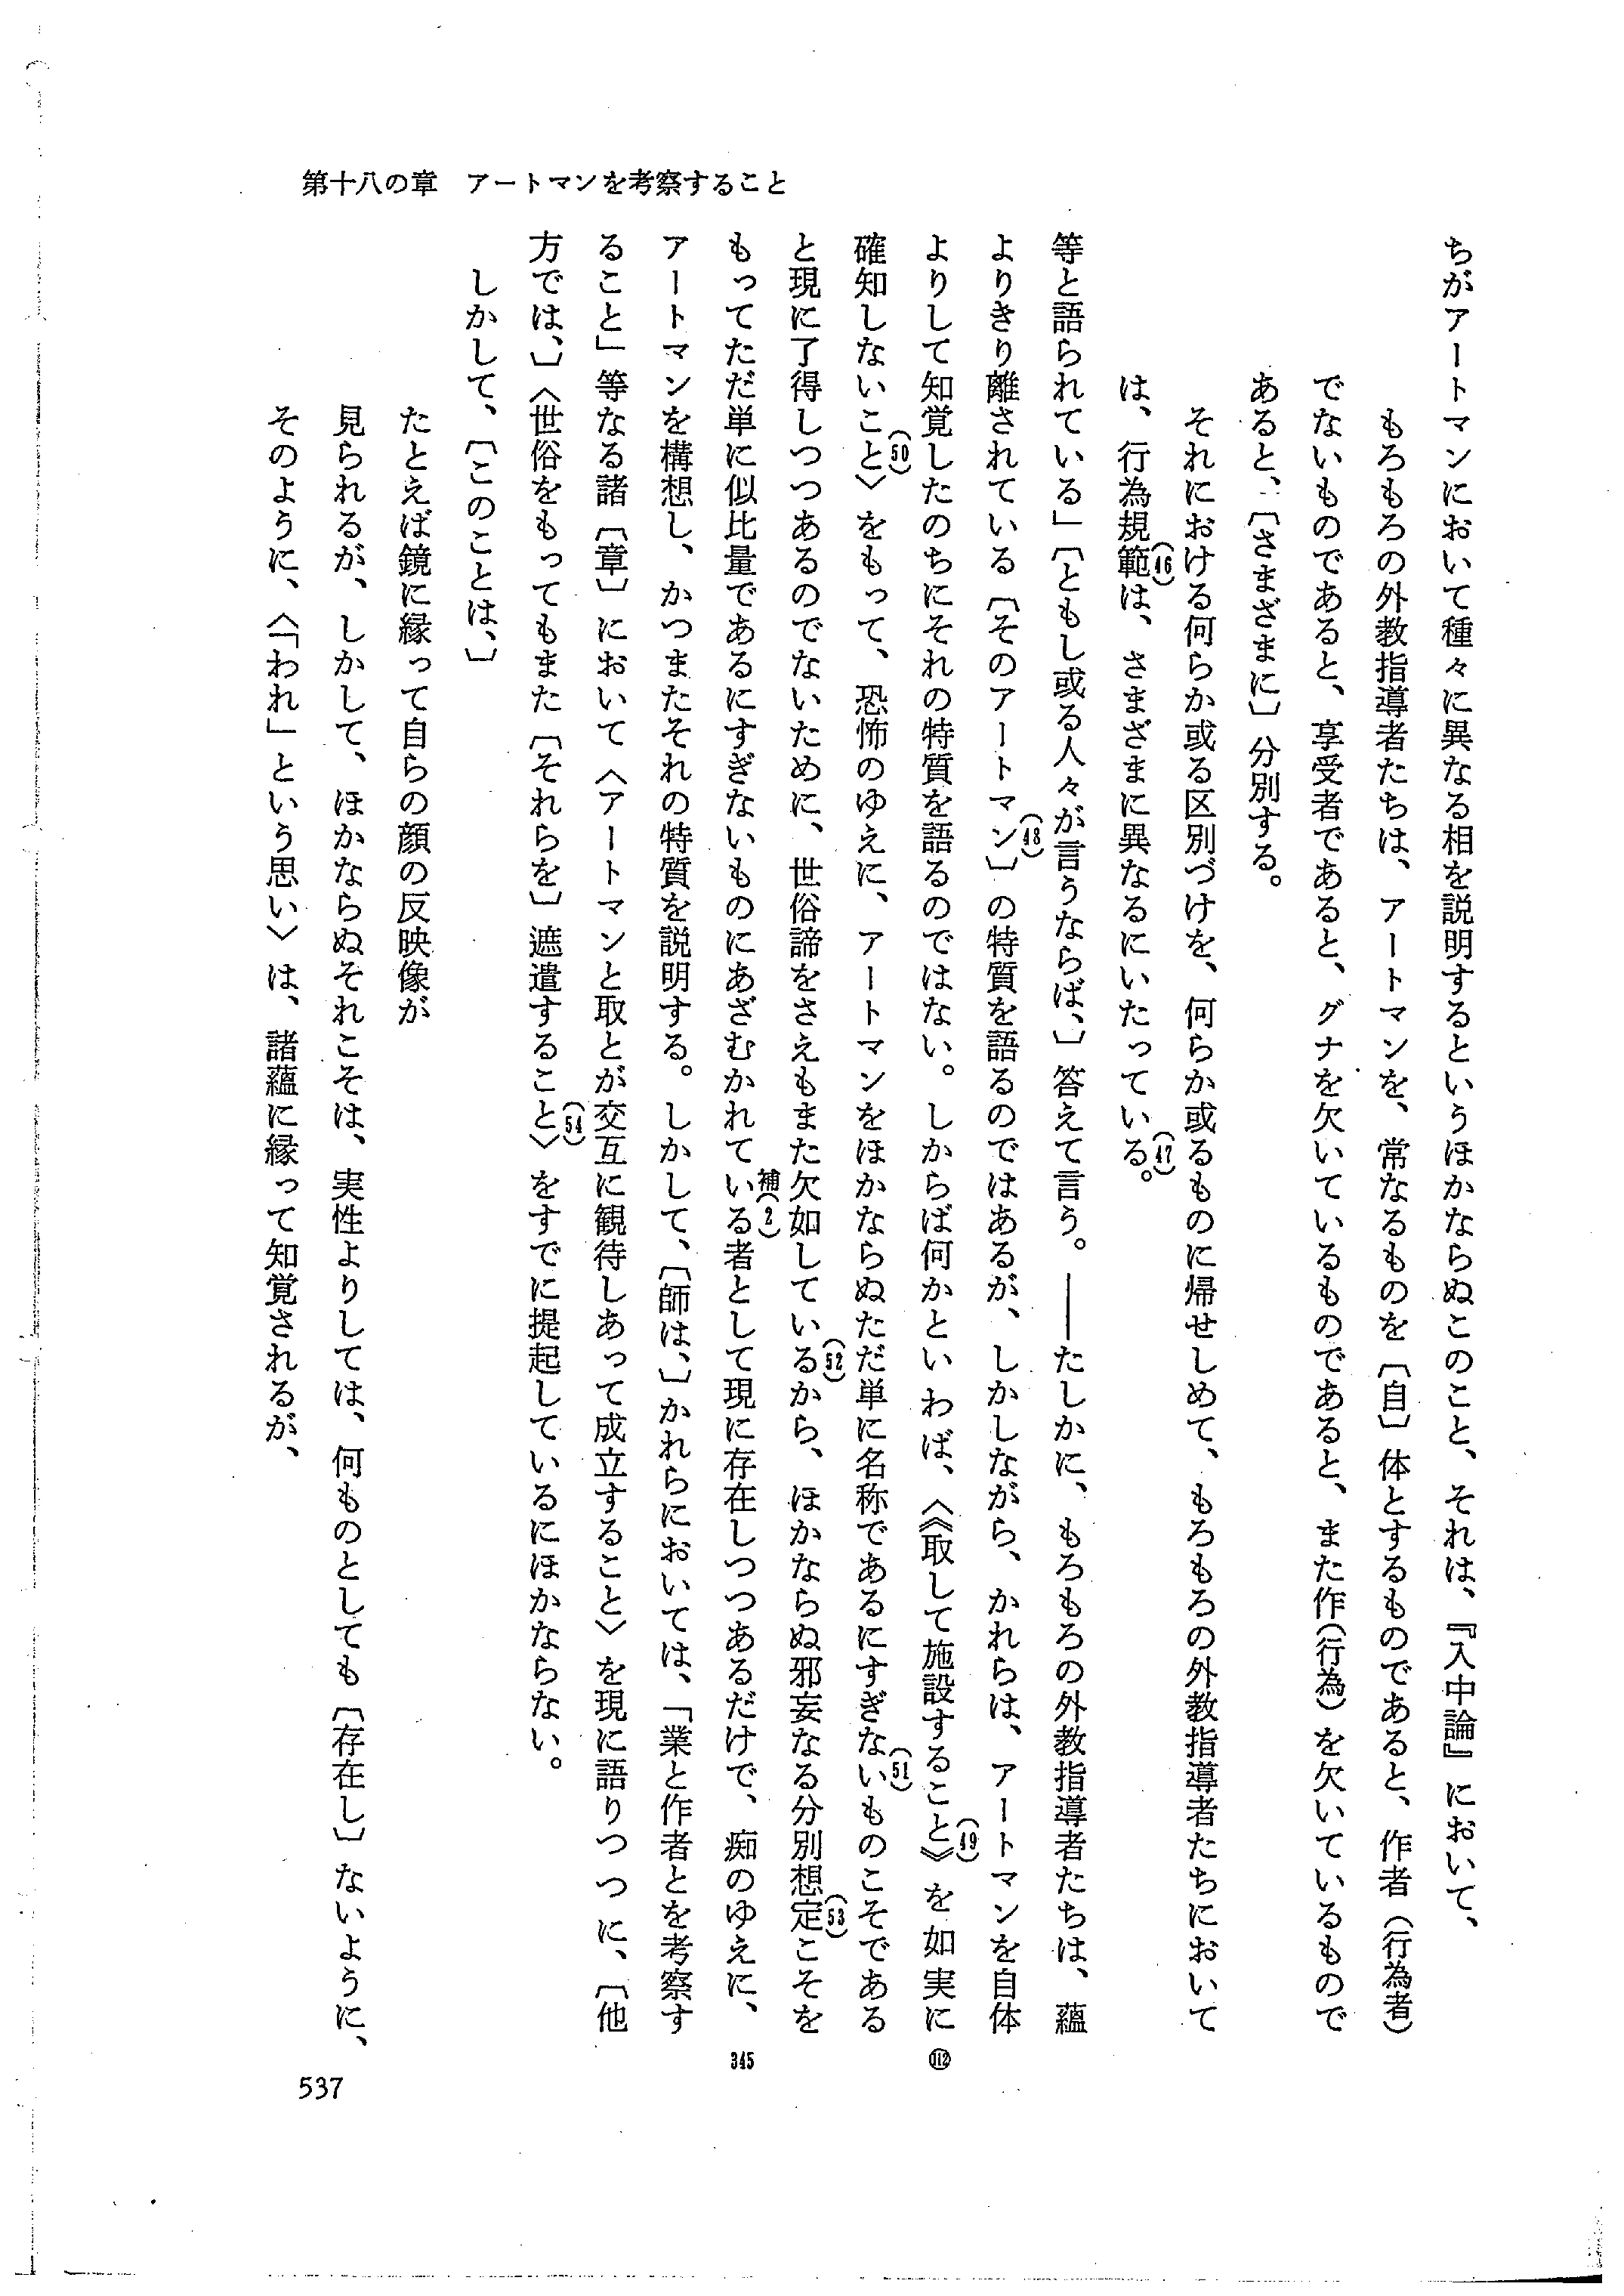 第十八の章　アートマンを考察すること
ちがアートマンにおいて種々に異なる相を説明するというほかならぬこのこと、それは、『入中論』において、
もろもろの外教指導者たちは、アートマンを、常なるものを〔自〕体とするものであると、作者（行為者）
でないものであると、享受者であると、グナを欠いているものであると、また作（行為）を欠いているもので
あると、〔さまざまに〕分別する。
それにおける何らか或る区別づけを、何らか或るものに帰せしめて、もろもろの外教指導者たちにおいて
は、行為規範(46)は、さまざまに異なるにいたっている(47)。
等と語られている」〔ともし或る人々が言うならば、〕答えて言う。――たしかに、もろもろの外教指導者たちは、蘊
よりきり離されている〔そのアートマン(48)〕の特質を語るのではあるが、しかしながら、かれらは、アートマンを自体
よりして知覚したのちにそれの特質を語るのではない。しからば何かといわば、〈《取して施設すること(49)》を如実に
確知しないこと(50)〉をもって、恐怖のゆえに、アートマンをほかならぬただ単に名称であるにすぎない(51)ものこそである
と現に了得しつつあるのでないために、世俗諦をさえもまた欠如している(52)から、ほかならぬ邪妄なる分別想定(53)こそを
もってただ単に似比量であるにすぎないものにあざむかれている補(2)者として現に存在しつつあるだけで、痴のゆえに、
アートマンを構想し、かつまたそれの特質を説明する。しかして、〔師は、〕かれらにおいては、「業と作者とを考察す
ること」等なる諸〔章〕において〈アートマンと取とが交互に観待しあって成立すること〉を現に語りつつに、〔他
方では、〕〈世俗をもってもまた〔それらを〕遮遣すること(54)〉をすでに提起しているにほかならない。
しかして、〔このことは、〕
たとえば鏡に縁って自らの顔の反映像が
見られるが、しかして、ほかならぬそれこそは、実性よりしては、何ものとしても〔存在し〕ないように、
そのように、〈「われ」という思い〉は、諸蘊に縁って知覚されるが、
⑪⑫
345
537